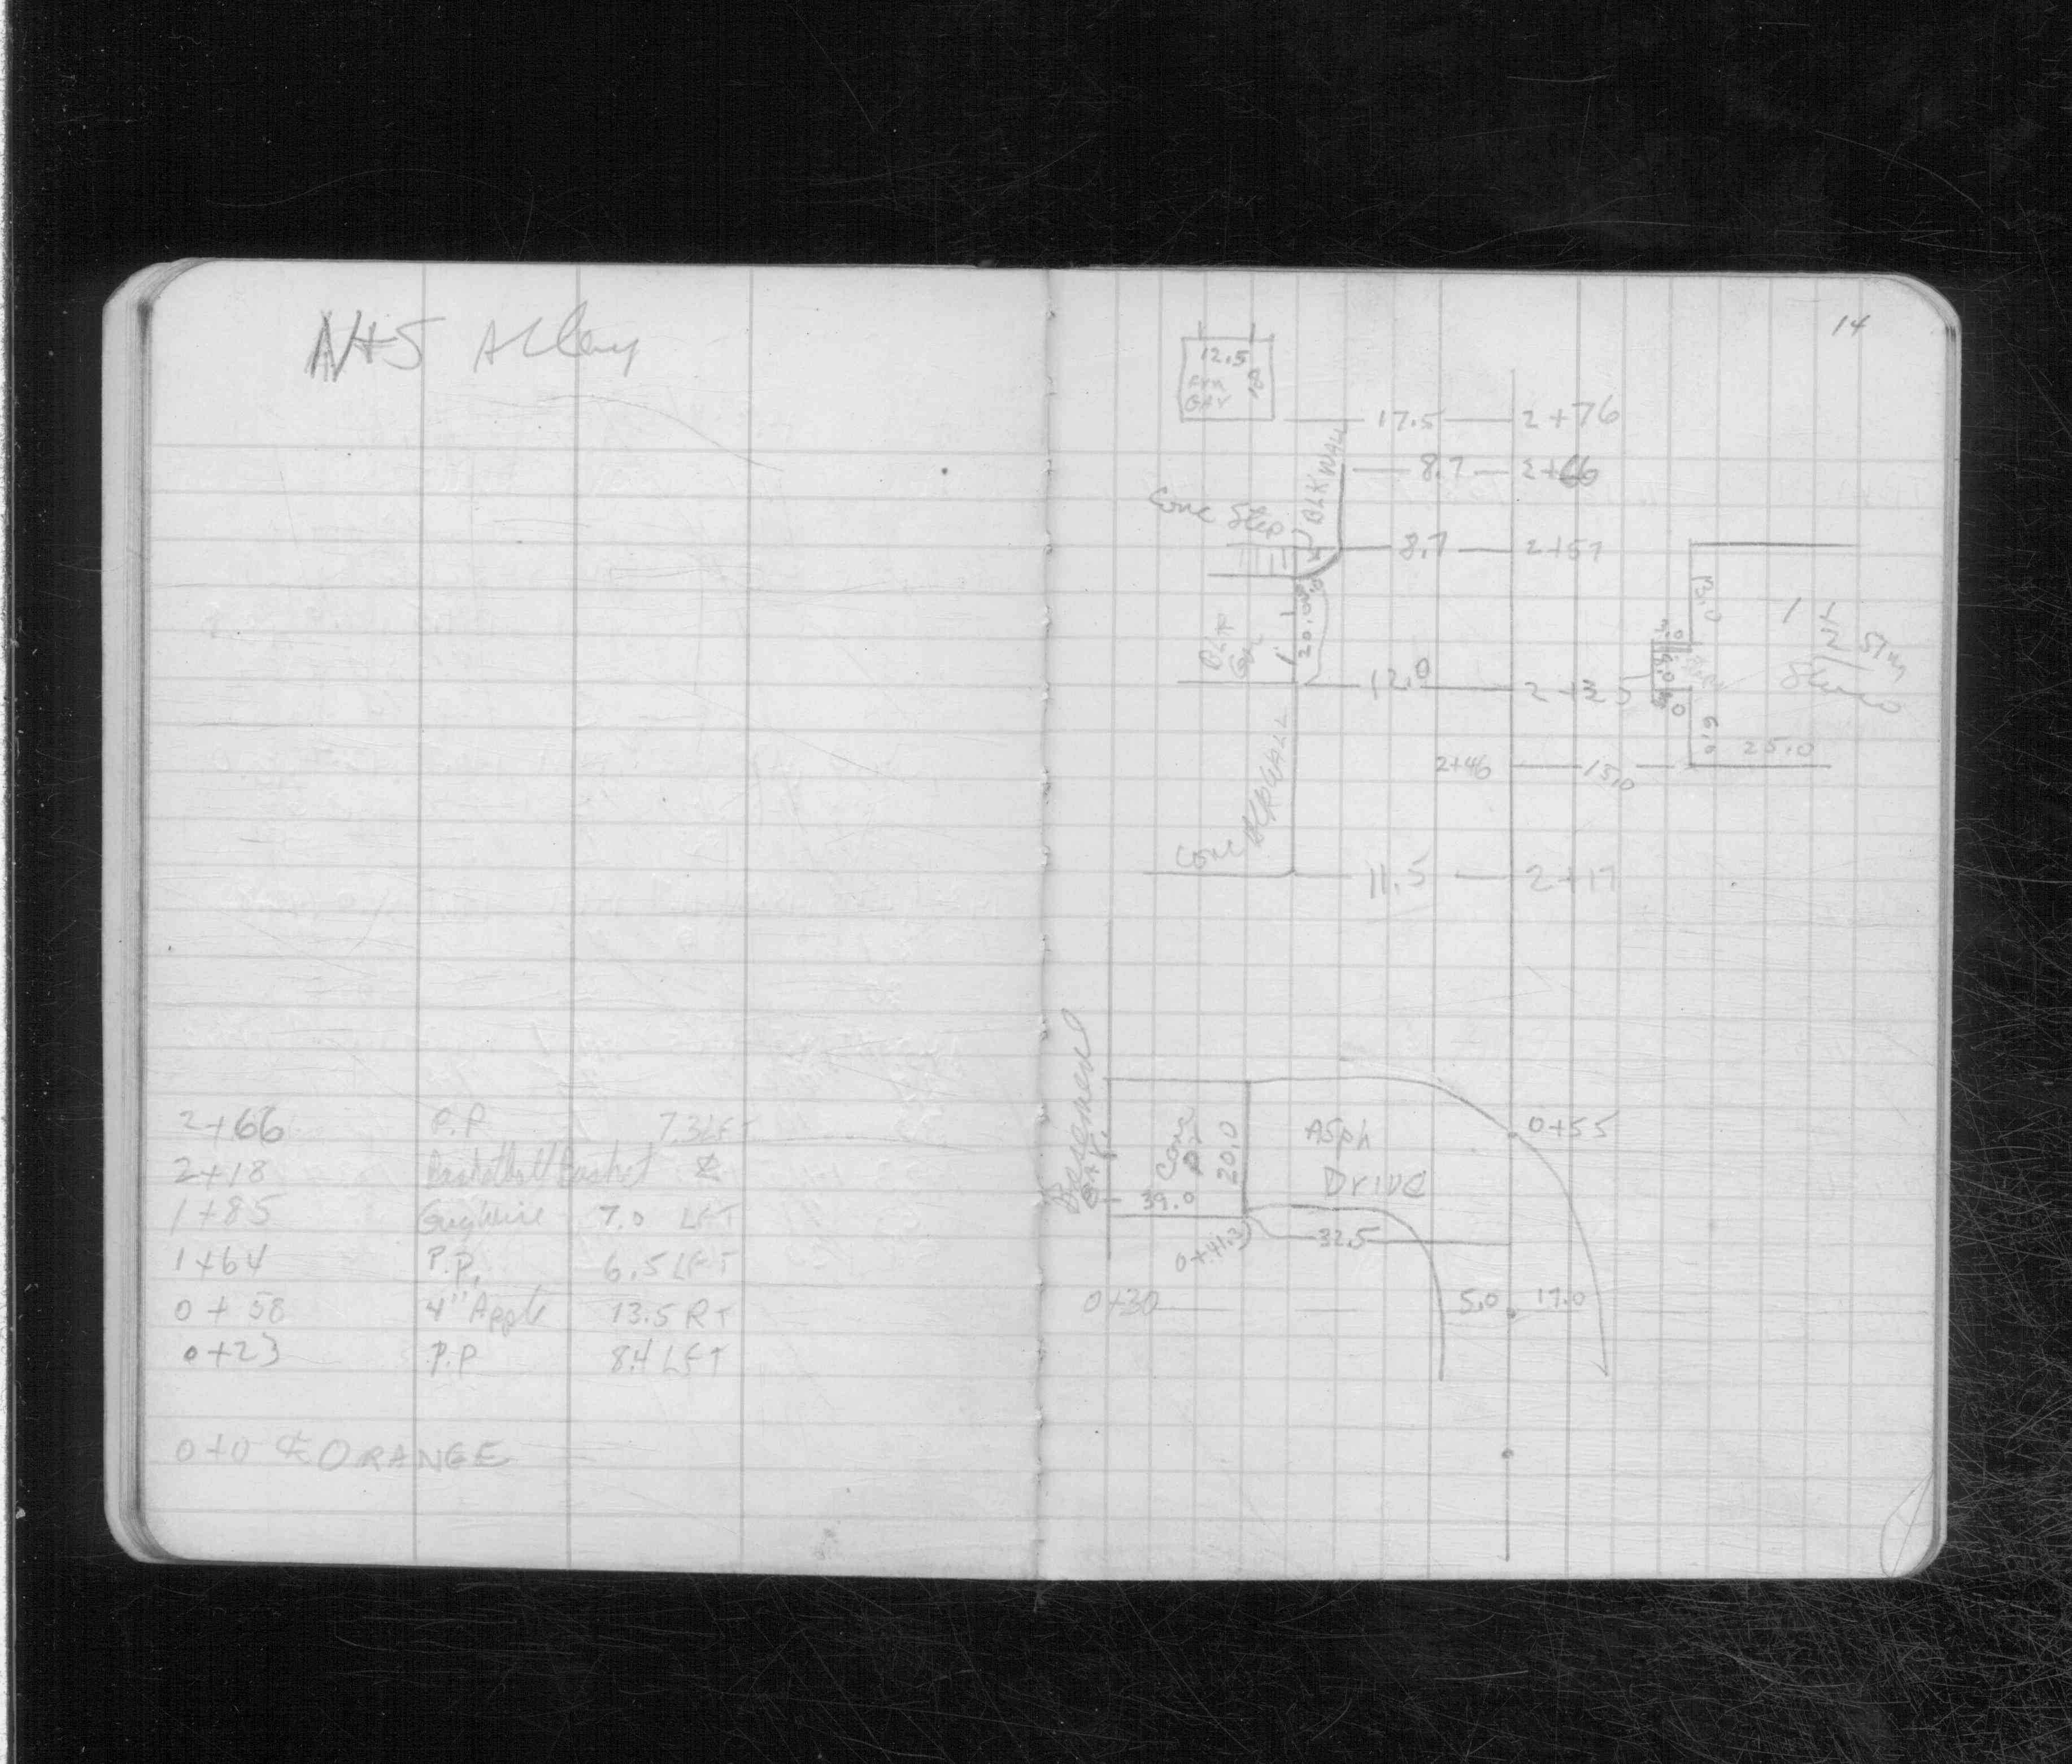 N+S Alley
2+66 P.P 7.3 LFT
2+18 Basketball Basket ℄
1+85 Guy Wire 7.0 LFT
1+64 P.P. 6.5 LFT
0+58 4" Apple 13.5 RT
0+23 P.P 8.4 LFT
0+0 ℄ ORANGE
14
12.5
18
Frm
GAR
17.5 2+76
8.7 2+66
BLK WALL
Conc Step
8.7 2+57
20.0
12.0
1
Sty
25.0
2+46 15.0
BLK WALL
Conc
11.5 2+17
Basement
Conc
20.0
39.0
Asph
Drive
0+55
0+41.3
32.5
0+30 5.0 17.0